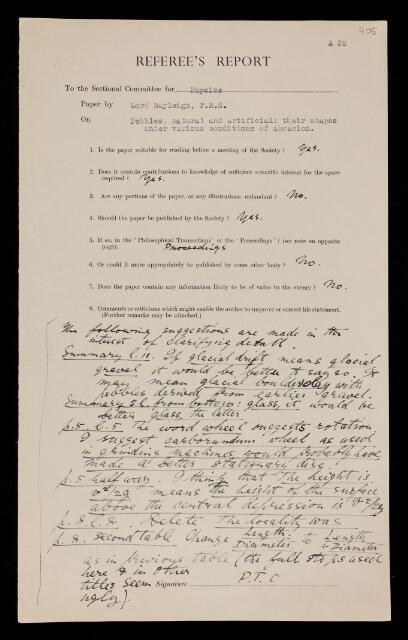 405
A 32
REFEREE'S REPORT
To the Sectional Committee for Physics
Paper by Lord Rayleigh, F.R.S.
On Pebbles, natural and artificial: their shapes
under various conditions of abrasion.
1. Is the paper suitable for reading before a meeting of the Society? Yes.
2. Does it contain contributions to knowledge of sufficient scientific interest for the space
required? Yes.
3. Are any portions of the paper, or any illustrations, redundant? No.
4. Should the paper be published by the Society? Yes.
5. If so, in the 'Philosophical Transactions' or the 'Proceedings'? (see note on opposite
page). Proceedings
6. Or could it more appropriately be published by some other body? No.
7. Does the paper contain any information likely to be of value to the enemy? No.
8. Comments or criticisms which might enable the author to improve or correct his statement.
(Further remarks may be attached.)
The following suggestions are made in the
interest of clarifying detail.
Summary l. 11. If glacial drift means glacial
gravel it would be better to say so. It
may mean glacial boulder clay with
pebbles derived from earlier gravel.
Summary 5 l. from bottom: glass, it would be
better glass, the latter
p.5. l.5 The word wheel suggests rotation
I suggest carborundum wheel as used
in grinding machines would probably have
made a better stationary disc?
p.5 half way. I think that the height is
v²/2g means the height of the surface
above the central depression is v²/2g
p.8 l.8. Delete the locality was
p.8. second table Change Length: Diameter to Length ÷ Diameter
as in previous table (the full stops used
here & in other
titles seem Signature P.T.O
ugly).